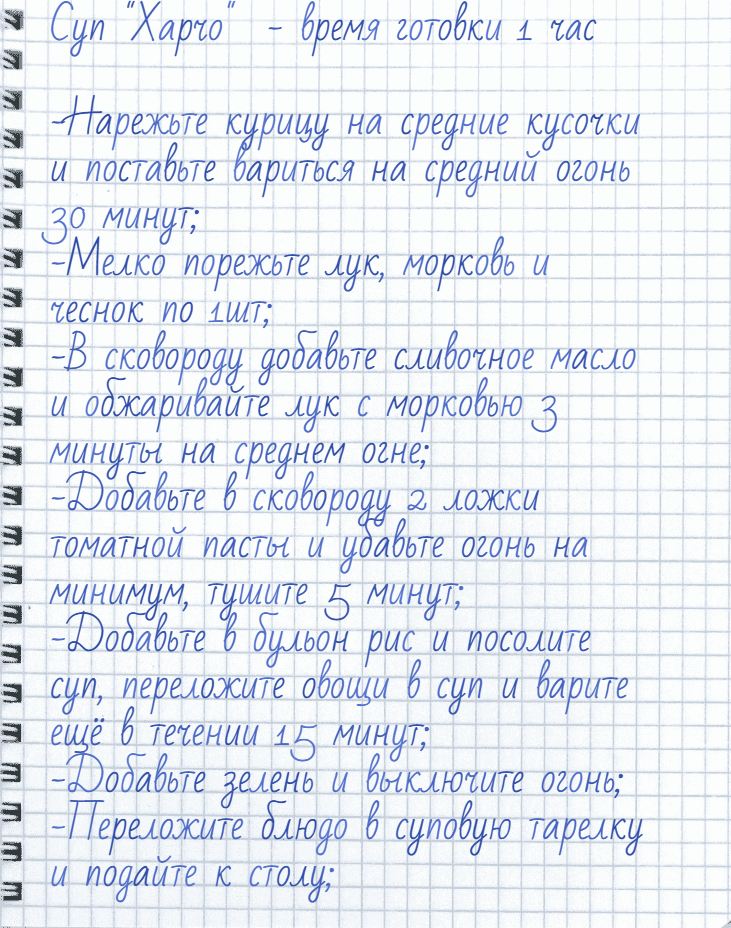 Суп "Харчо" - время готовки 1 час
-Нарежьте курицу на средние кусочки
и поставьте вариться на средний огонь
30 минут;
-Мелко порежьте лук, морковь и
чеснок по 1шт;
-В сковороду добавьте сливочное масло
и обжаривайте лук с морковью 3
минуты на среднем огне;
-Добавьте в сковороду 2 ложки
томатной пасты и убавьте огонь на
минимум, тушите 5 минут;
-Добавьте в бульон рис и посолите
суп, переложите овощи в суп и варите
ещё в течении 15 минут;
-Добавьте зелень и выключите огонь;
-Переложите блюдо в суповую тарелку
и подайте к столу;